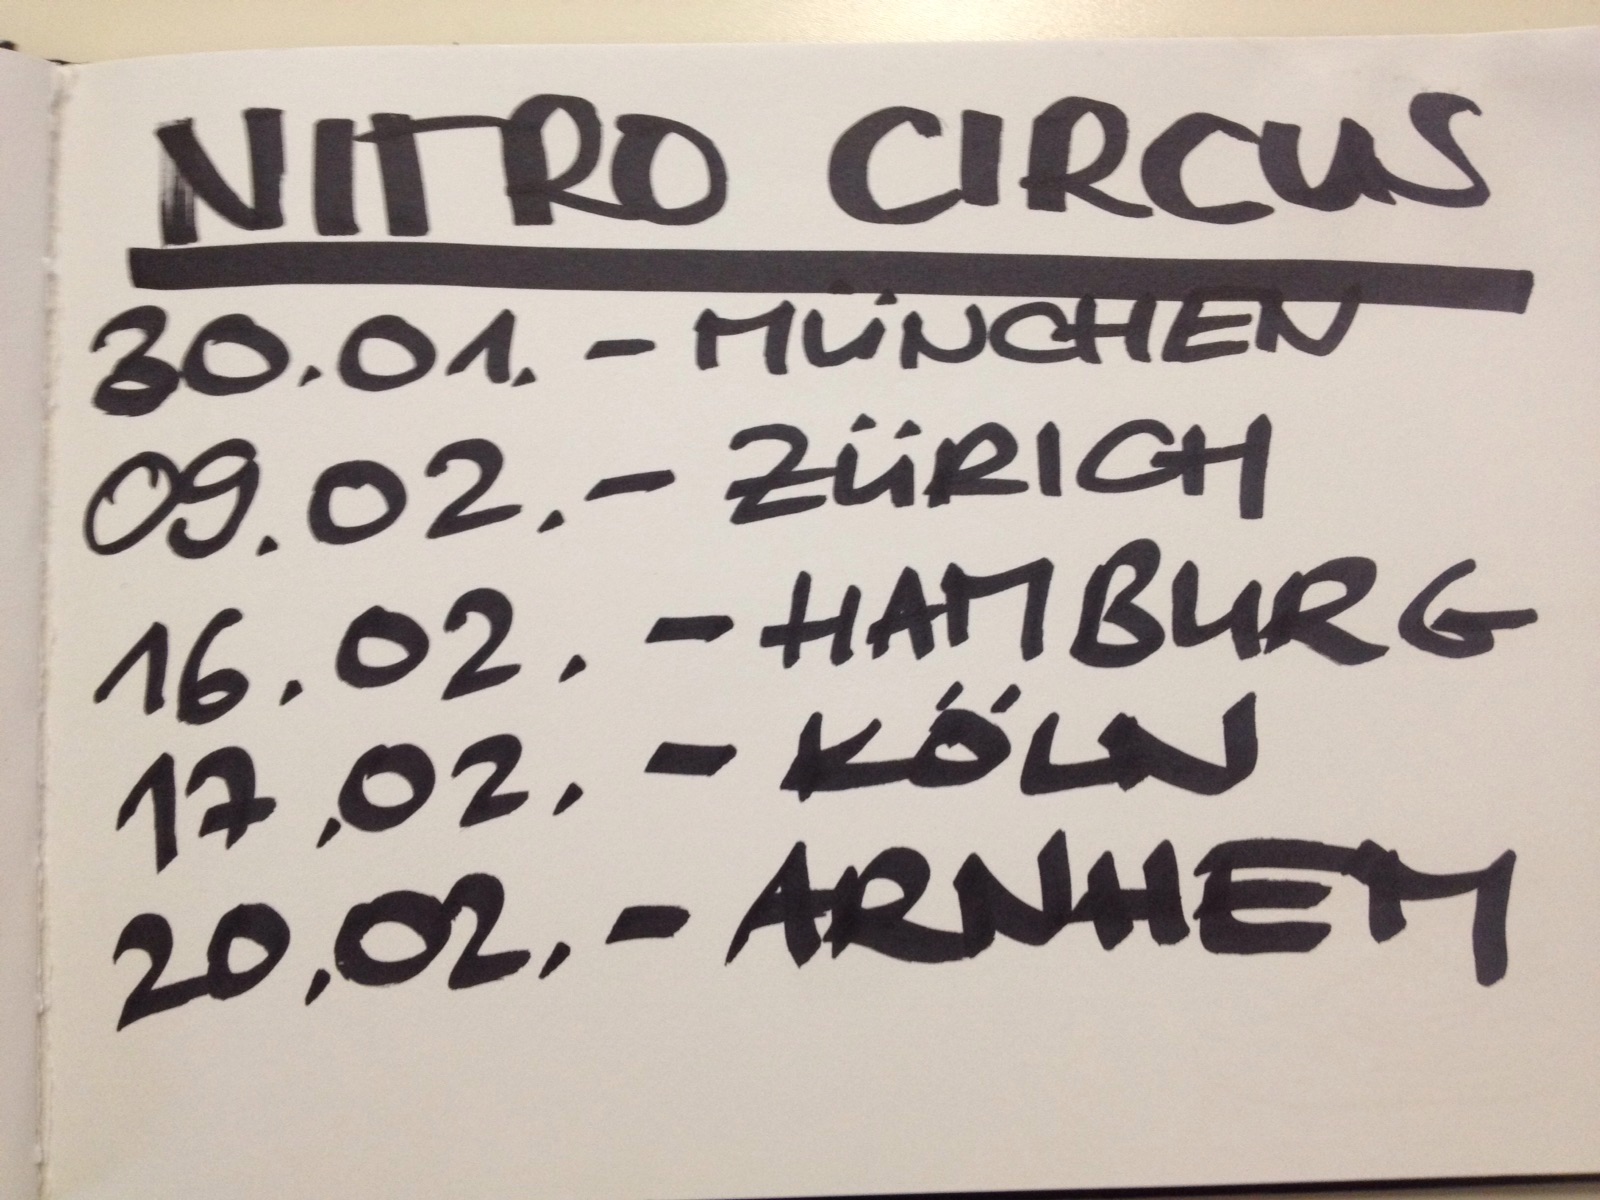 NITRO CIRCUS
30.01. - MÜNCHEN
09.02. - ZÜRICH
16.02. - HAMBURG
17.02. - KÖLN
20.02. - ARNHEM